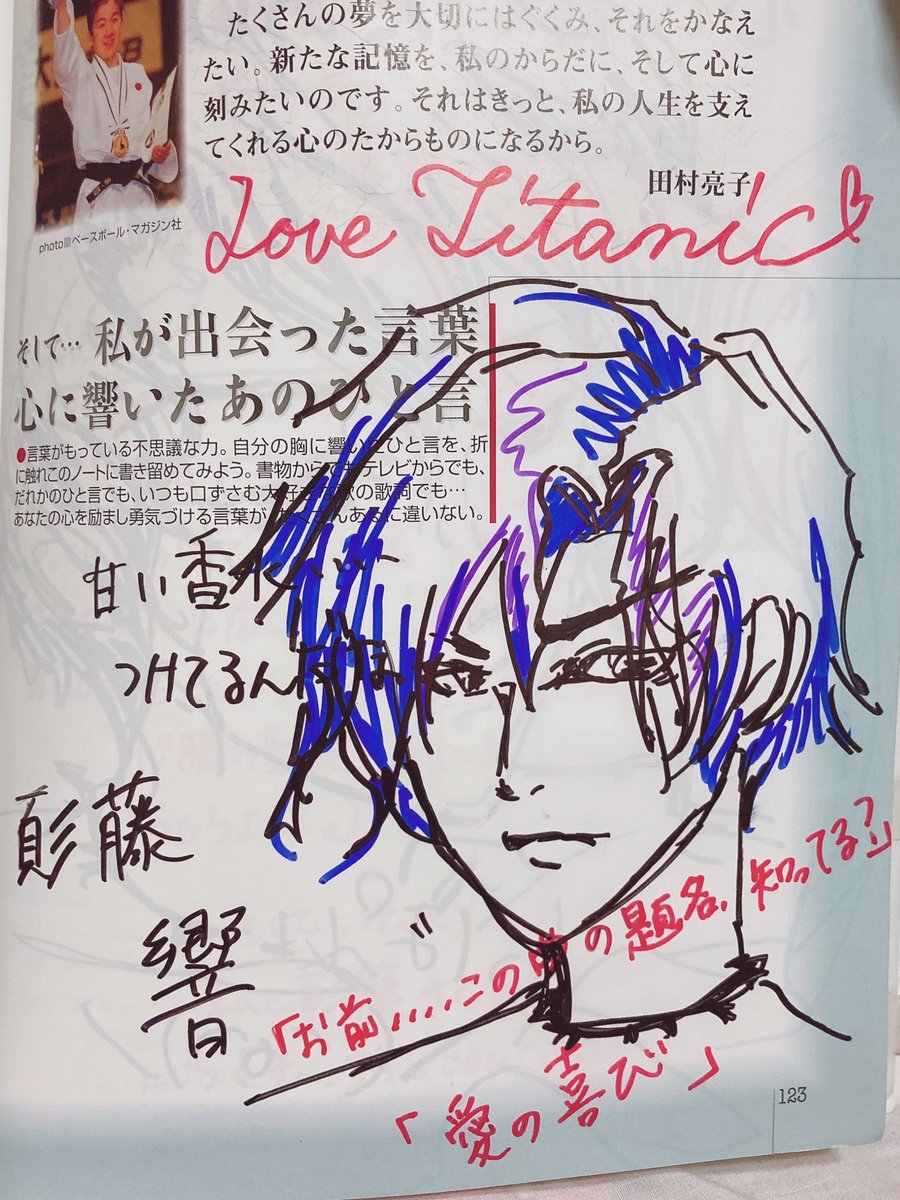 たくさんの夢を大切にはぐくみ、それをかなえ
たい。新たな記憶を、私のからだに、そして心に
刻みたいのです。それはきっと、私の人生を支え
てくれる心のたからものになるから。
田村亮子
photo■ベースボール・マガジン社
Love Titanic
そして… 私が出会った言葉
心に響いたあのひと言
●言葉がもっている不思議な力。自分の胸に響いたひと言を、折
に触れこのノートに書き留めてみよう。書物からでもテレビからでも、
だれかのひと言でも、いつも口ずさむ大好きな歌の歌詞でも…
あなたの心を励まし勇気づける言葉が、たくさんあるに違いない。
甘い香水....
つけてるんだな
藤
響
「お前....この曲の題名、知ってる?」
「愛の喜び」
123